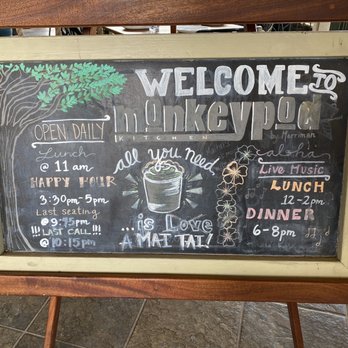 WELCOME TO
monkeypod
KITCHEN
by Merriman
OPEN DAILY
Lunch
@ 11 am
HAPPY HOUR
3:30pm-5pm
Last seating
@ 9:45pm
!!! LAST CALL...!!!
@ 10:15pm
all you need
...is Love
A MAI TAI!
aloha
Live Music
LUNCH
12-2pm
DINNER
6-8pm